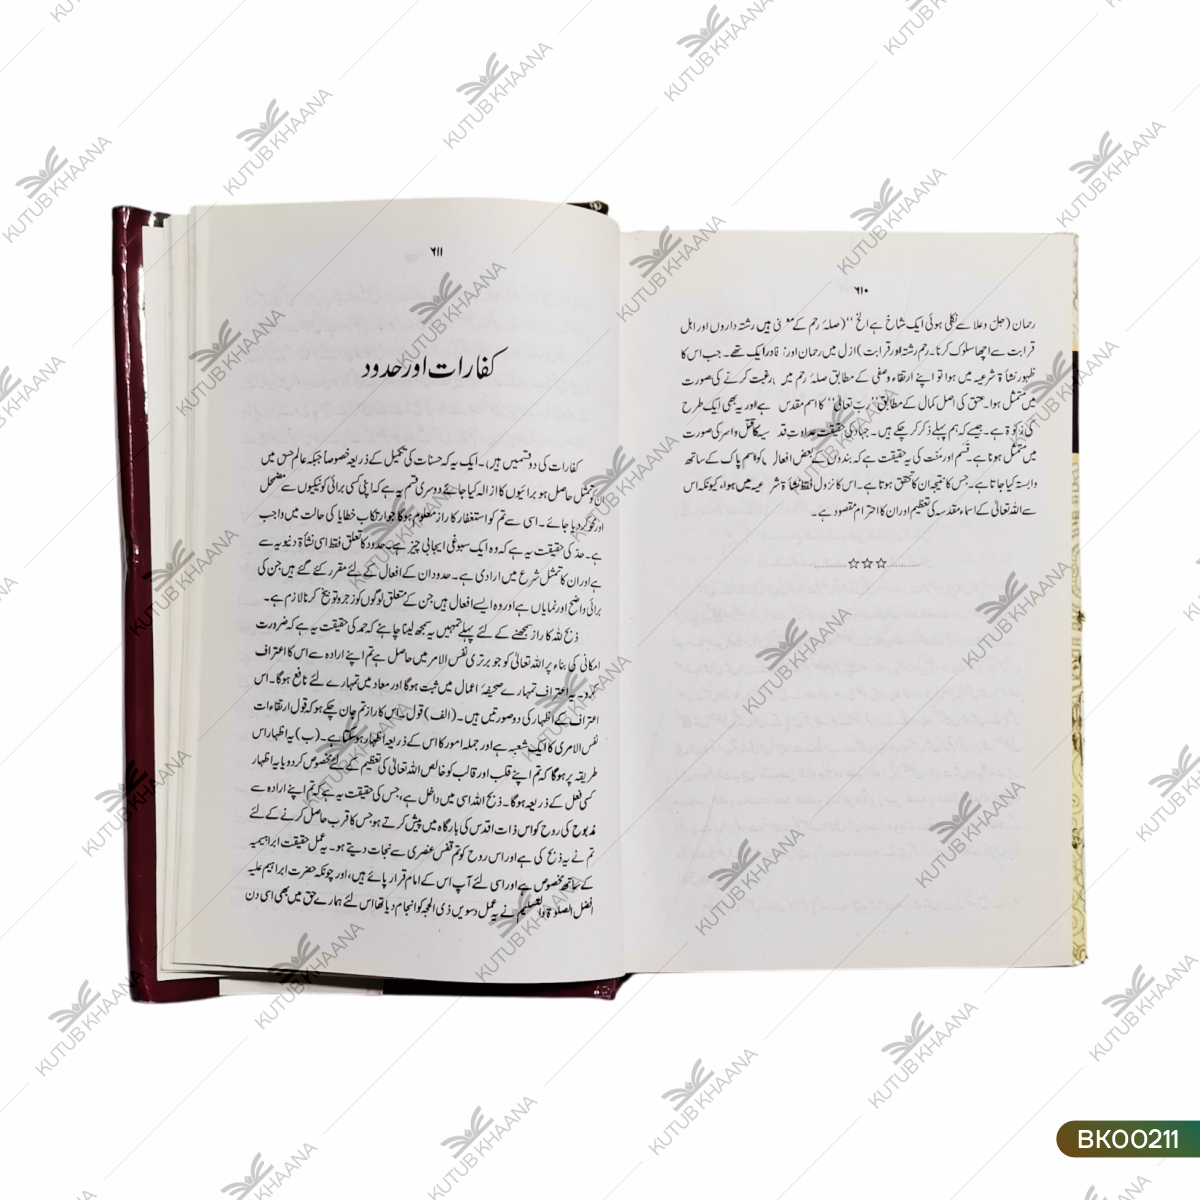 ۶۱۰
رحمان (جل وعلا سے نکلی ہوئی ایک شاخ ہے الخ'' (صلۂ رحم کے معنی ہیں رشتہ داروں اور اہل
قرابت سے اچھا سلوک کرنا۔ رحم رشتہ اور قرابت) ازل میں رحمان اور قادر ایک تھے۔ جب اس کا
ظہور نشاۃ شرعیہ میں ہوا تو اپنے ارتقاء وصفی کے مطابق صلۂ رحم میں رغبت کرنے کی صورت
میں متمثل ہوا۔ عتق کی اصل کمال کے مطابق ''ربّ تعالیٰ'' کا اسم مقدس ہے اور یہ بھی ایک طرح
کی زکوٰۃ ہے۔ جیسے کہ ہم پہلے ذکر کر چکے ہیں۔ جہاد کی حقیقت عداوتِ قدسیہ کا قتل و اسر کی صورت
میں متمثل ہونا ہے۔ قسم اور منّت کی یہ حقیقت ہے کہ بندوں کے بعض افعال کو اسم پاک کے ساتھ
وابستہ کیا جاتا ہے۔ جس کا نتیجہ ان کا تحقق ہوتا ہے۔ اس کا نزول فقط نشاۃ شرعیہ میں ہوا، کیونکہ اس
سے اللہ تعالیٰ کے اسماء مقدسہ کی تعظیم اور ان کا احترام مقصود ہے۔
☆☆☆
۶۱۱
کفارات اور حدود
کفارات کی دو قسمیں ہیں۔ ایک یہ کہ حسنات کی تکمیل کے ذریعہ خصوصاً جبکہ عالم حس میں
ان کو تمثل حاصل ہو برائیوں کا ازالہ کیا جائے دوسری قسم یہ ہے کہ اپنی کسی برائی کو نیکیوں سے مضمحل
اور محو کر دیا جائے۔ اسی سے تم کو استغفار کا راز معلوم ہوگا جو ارتکاب خطایا کی حالت میں واجب
ہے۔ حد کی حقیقت یہ ہے کہ وہ ایک سبوغی ایجابی چیز ہے۔ حدود کا تعلق فقط اسی نشاۃ دنیویہ سے
ہے اور ان کا تمثل شرع میں ارادی ہے۔ حدود ان کے افعال کے لئے مقرر کئے گئے ہیں جن کی
برائی واضح اور نمایاں ہے اور وہ ایسے افعال ہیں جن کے متعلق لوگوں کو زجر و توبیخ کرنا لازم ہے۔
ذبح للہ کا راز سمجھنے کے لئے پہلے تمہیں یہ سمجھ لینا چاہئے کہ حمد کی حقیقت یہ ہے کہ ضرورت
امکانی کی بناء پر اللہ تعالیٰ کو جو برتری نفس الامر میں حاصل ہے تم اپنے ارادہ سے اس کا اعتراف
کرو۔ یہ اعتراف تمہارے صحیفۂ اعمال میں ثبت ہوگا اور معاد میں تمہارے لئے نافع ہوگا۔ اس
اعتراف کے اظہار کی دو صورتیں ہیں۔ (الف) قول۔ اس کا راز تم جان چکے ہو کہ قول ارتقاءات
نفس الامری کا ایک شعبہ ہے اور جملہ امور کا اس کے ذریعہ اظہار ہو سکتا ہے۔ (ب) یہ اظہار اس
طریقہ پر ہوگا کہ تم اپنے قلب اور قالب کو خالص اللہ تعالیٰ کی تعظیم کے لئے مخصوص کر دو یا یہ اظہار
کسی فعل کے ذریعہ ہوگا۔ ذبح اللہ اسی میں داخل ہے، جس کی حقیقت یہ ہے کہ تم اپنے ارادہ سے
مذبوح کی روح کو اس ذات اقدس کی بارگاہ میں پیش کرتے ہو جس کا قرب حاصل کرنے کے لئے
تم نے یہ ذبح کی ہے اور اس روح کو تم قفس عنصری سے نجات دیتے ہو۔ یہ عمل حقیقت ابراہیمیہ
کے ساتھ مخصوص ہے اور اسی لئے آپ اس کے امام قرار پائے ہیں، اور چونکہ حضرت ابراہیم علیہ
افضل الصلوٰۃ والتسلیم نے یہ عمل دسویں ذی الحجہ کو انجام دیا تھا اس لئے ہمارے حق میں بھی اسی دن
KUTUB KHAANA
BK00211